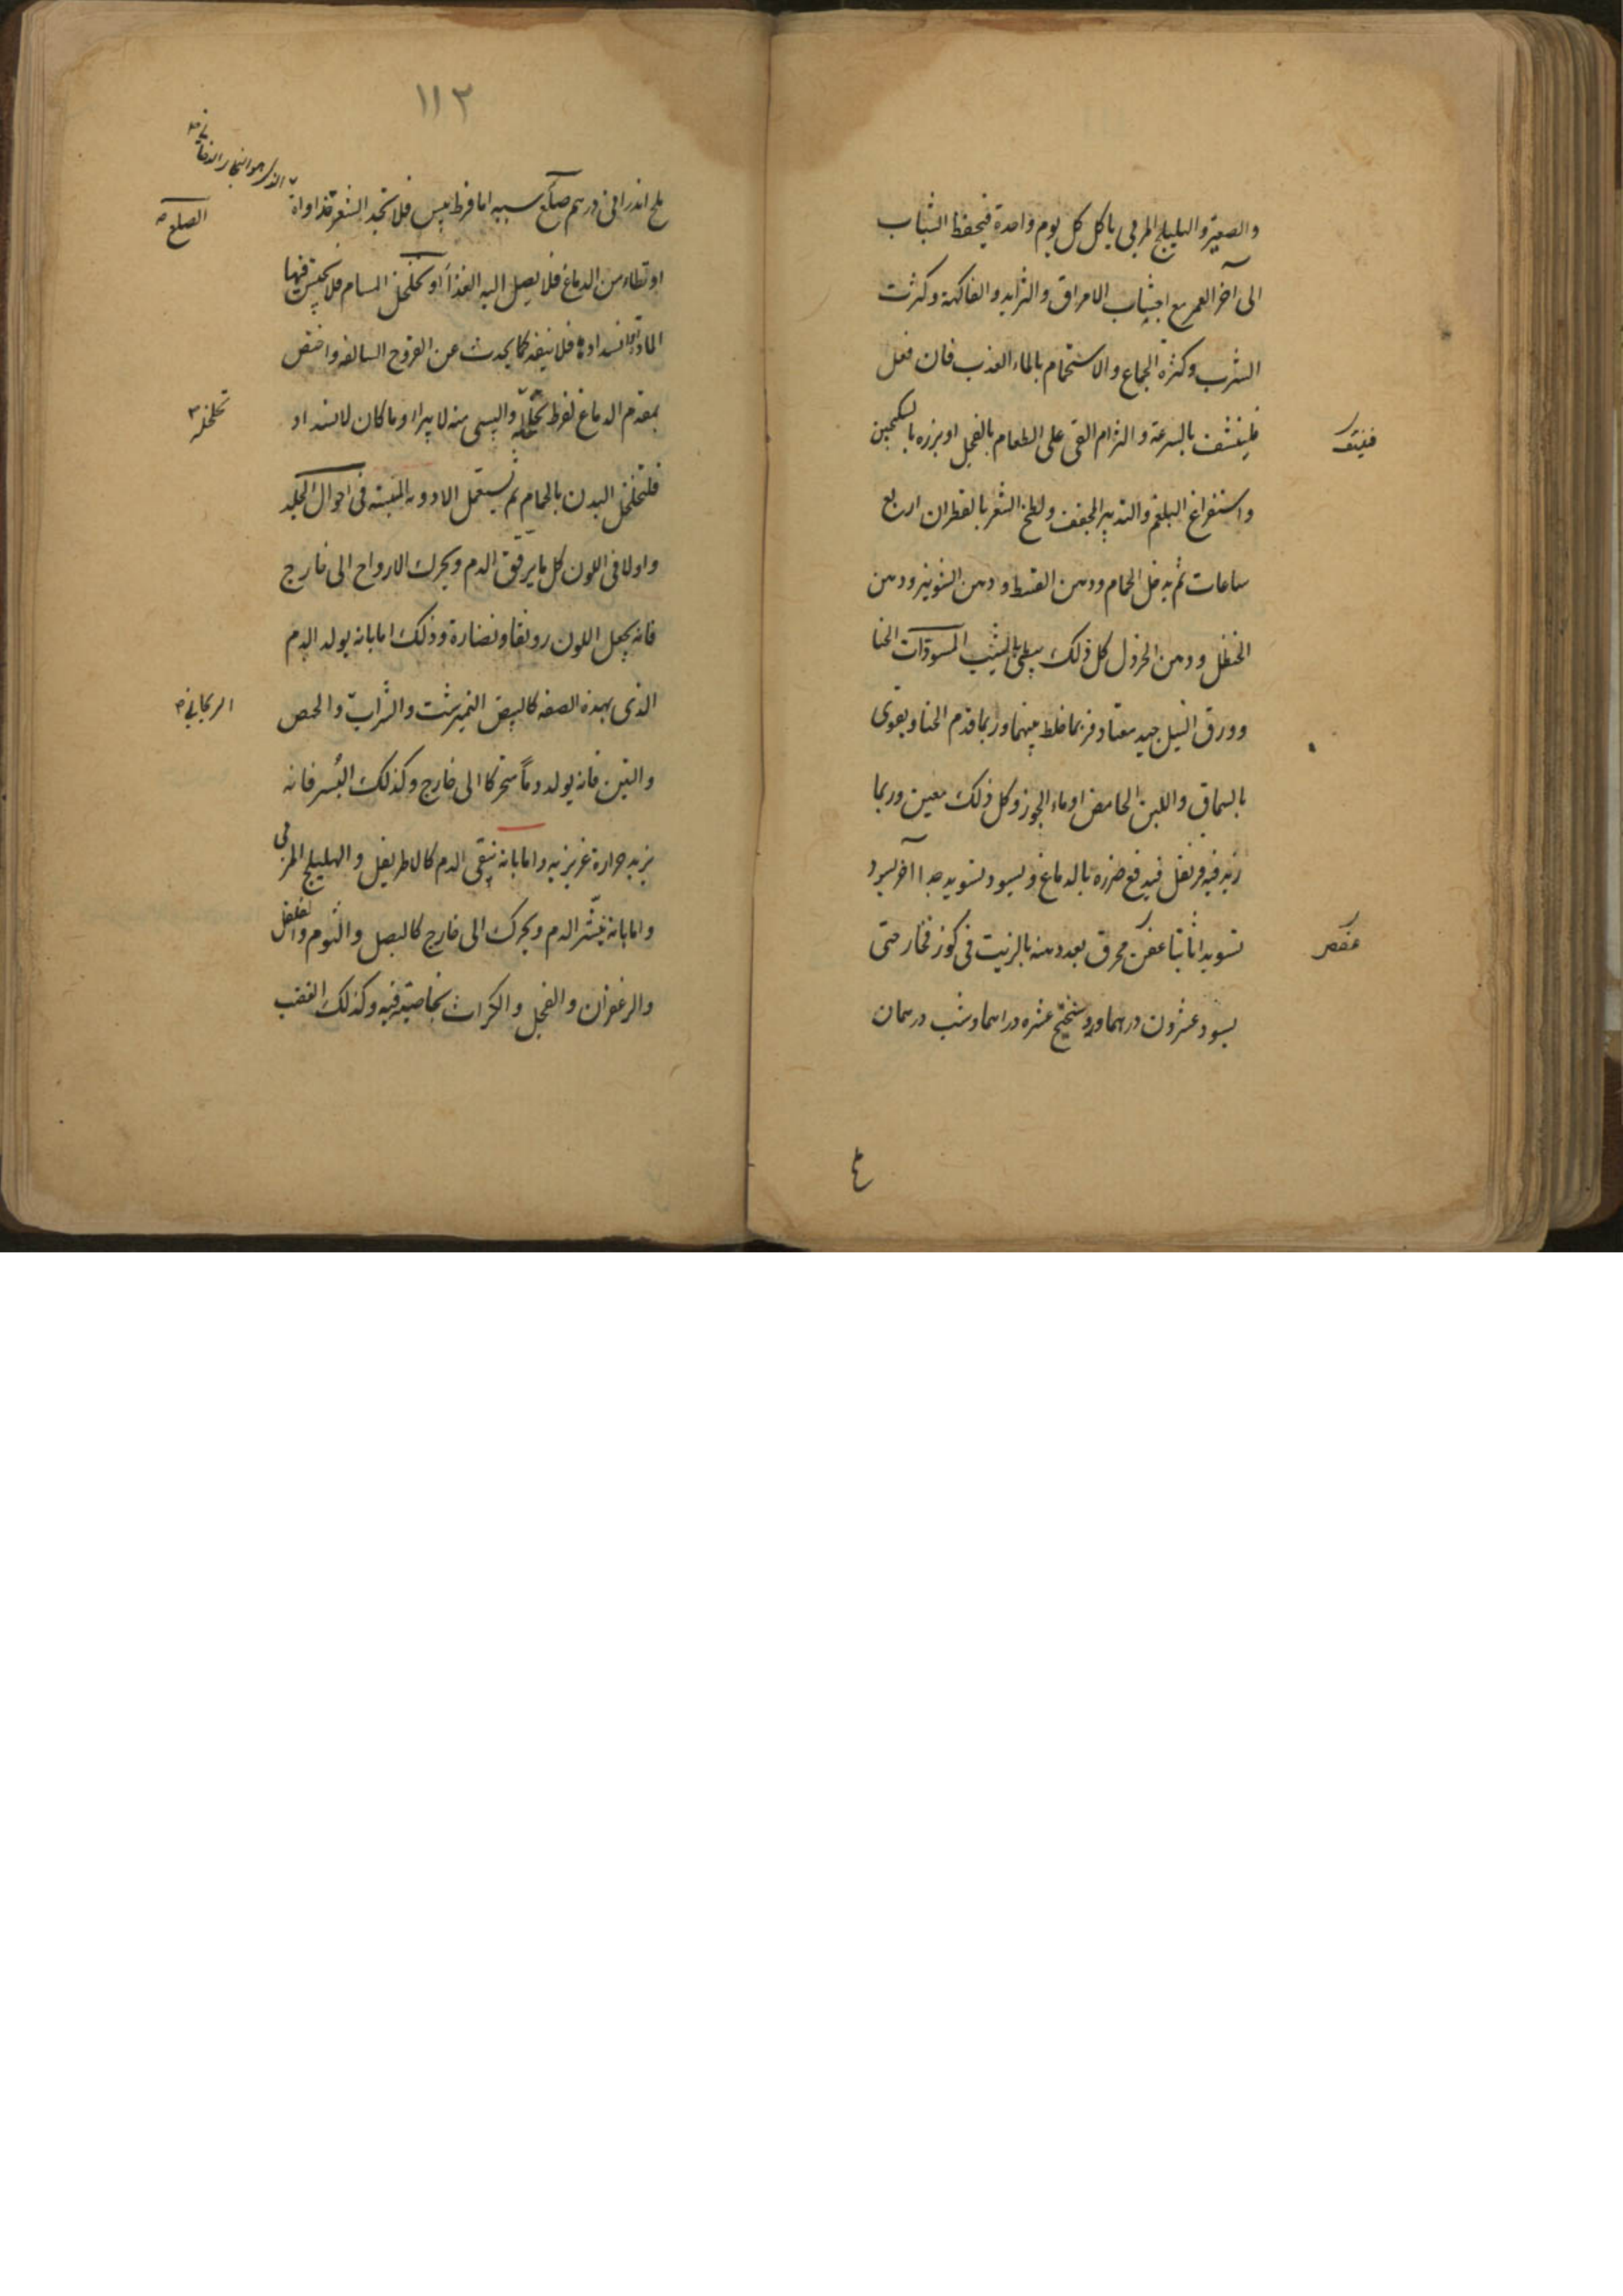 والصعتر والهليلج المربى ياكل كل يوم واحدة فيحفظ الشباب
الى آخر العمر مع اجتناب الامراق والثرايد والفاكهة وكثرت
الشرب وكثرة الجماع والاستحمام بالماء العذب فان فعل
فلينشف بالسرعة والتزام القى على الطعام بالفجل او بزره بالسكنجبين
واستفراغ البلغم والتدبير المجفف ولطخ الشعر بالقطران اربع
ساعات ثم يدخل الحمام ودهن القسط ودهن الشونيز ودهن
الحنظل ودهن الخردل كل ذلك يبطى بالشيب المسودات الحنا
وورق النيل جيد معتاد فربما خلط بينهما وربما قدم الحنا ويقوى
بالسماق واللبن الحامض او ماء الجوز وكل ذلك معين وربما
زيد فيه قرنفل فيدفع ضرره بالدماغ ويسود تسويد جدا آخر يسود
تسويدا ثابتا عفص محرق بعد دهنه بالزيت فى كوز فخار حتى
عفص
يسود عشرون درهما وروسختج عشره دراهما وشب درهمان
١١٢
ملح اندرانى درهم صلع سببه اما فرط يبس فلا تجد الشعر غذا واه
الصلع
او تطاء من الدماغ فلا يصل اليه الغذا او تخلخل المسام فلا يحتبس فيها
المادة او انسدادها فلا ينفذ كما يحدث عن القروح السالفه واختص
بمقدم الدماغ لفرط تخلله واليبسى منه لا يبرا وما كان لانسداد
تخلخله
فلتخلخل البدن بالحمام ثم يستعمل الادويه المنبته فى احوال الجلد
واولا فى اللون كل ما يرقق الدم ويحرك الارواح الى خارج
فانه يجعل اللون رونقا ونضارة وذلك اما بانه يولد الدم
الذى بهذه الصفه كالبيض النميرشت والشراب والحمص
الريحانى
والتين فانه يولد دما متحركا الى خارج وكذلك البسر فانه
يزيد حرارة غريزيه واما بانه ينقى الدم كالاطريفل والهليلج المربى
واما بانه ينشر الدم ويحرك الى خارج كالبصل والثوم والفلفل
والزعفران والفجل والكراث بخاصيته فيه وكذلك الغضب